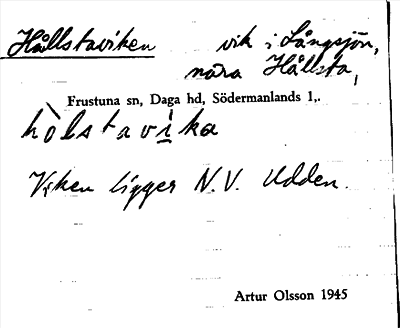 Hållstaviken vik i Långsjön,
nära Hållsta,
Frustuna sn, Daga hd, Södermanlands l,.
hòlstavika
Viken ligger N.V. Udden.
Artur Olsson 1945